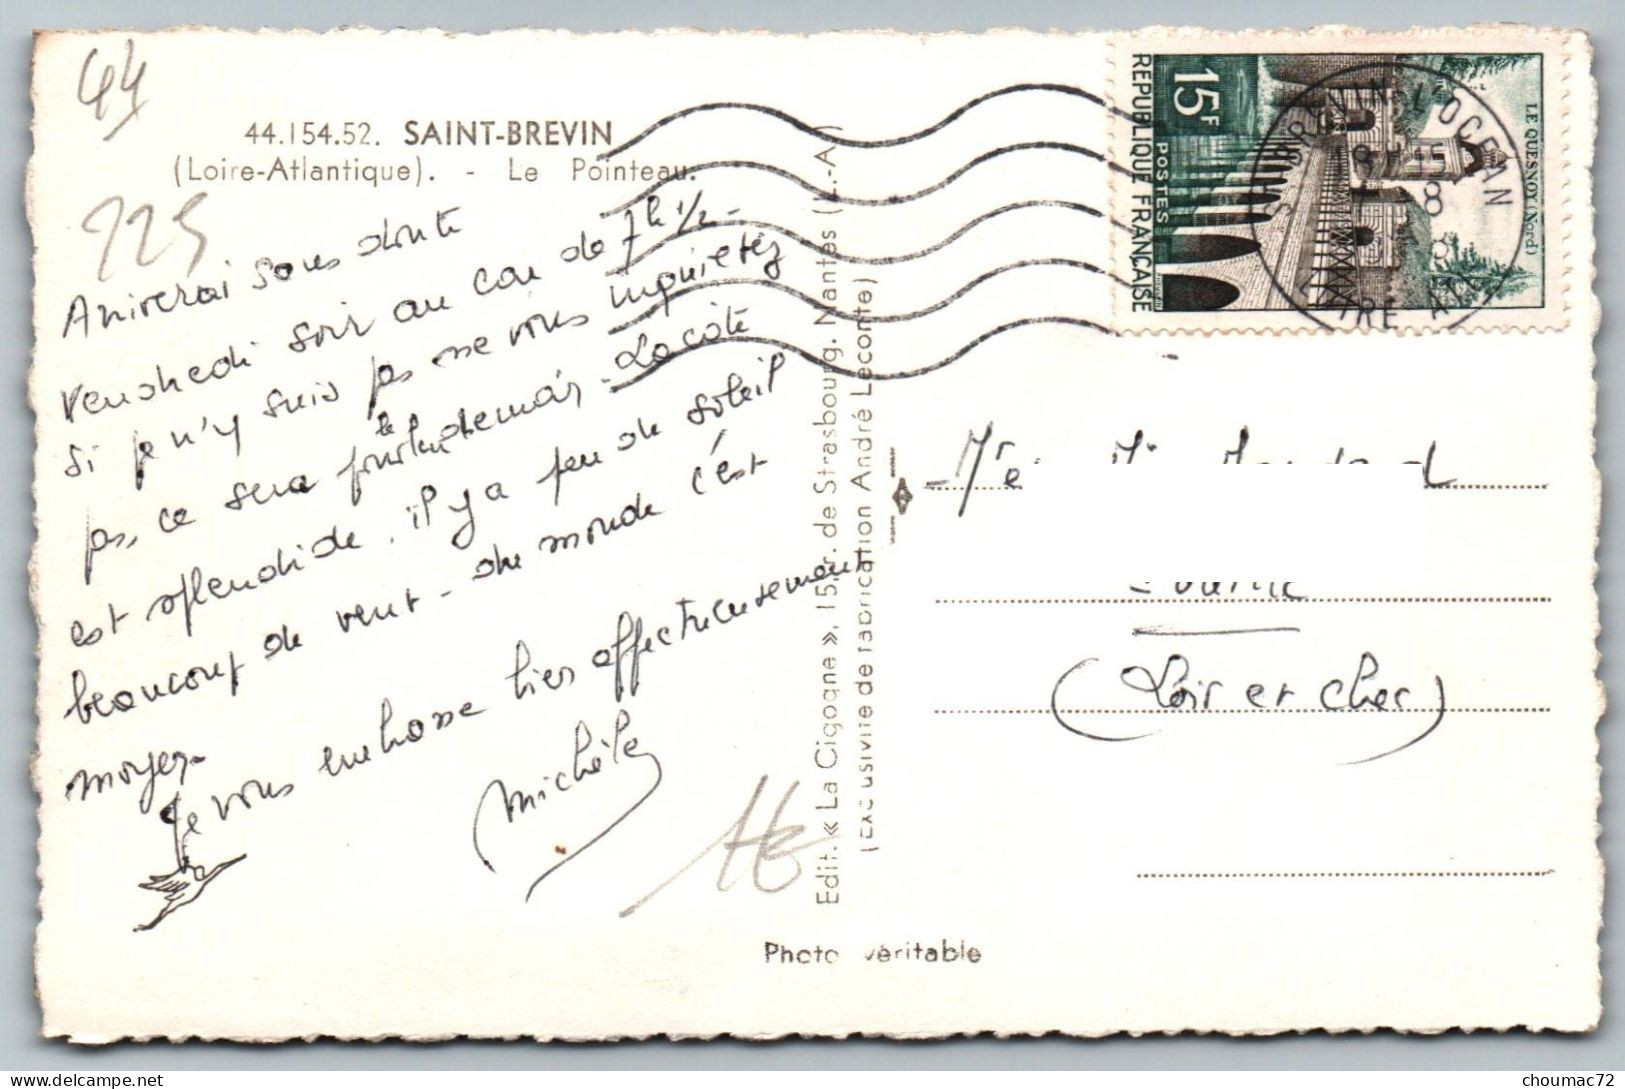 44
44.154.52. SAINT-BREVIN
(Loire-Atlantique). - Le Pointeau.
225
Arriverai sans doute
Vendredi soir au car de 7h 1/2 -
si je n'y suis pas ne vous inquiétez
pas, ce sera pour le lendemain - La côte
est splendide, il y a peu de soleil
beaucoup de vent - du monde c'est
moyen.
Je vous embrasse bien affectueusement
Michèle
1€
Edit. « La Cigogne », 15, r. de Strasbourg. Nantes (L.-A.)
(Exclusivité de fabrication André Leconte)
Photo véritable
15F
POSTES
REPUBLIQUE FRANÇAISE
LE QUESNOY (Nord)
BREVIN L'OCEAN
LOIRE ATL
(Loir et Cher)
choumac72